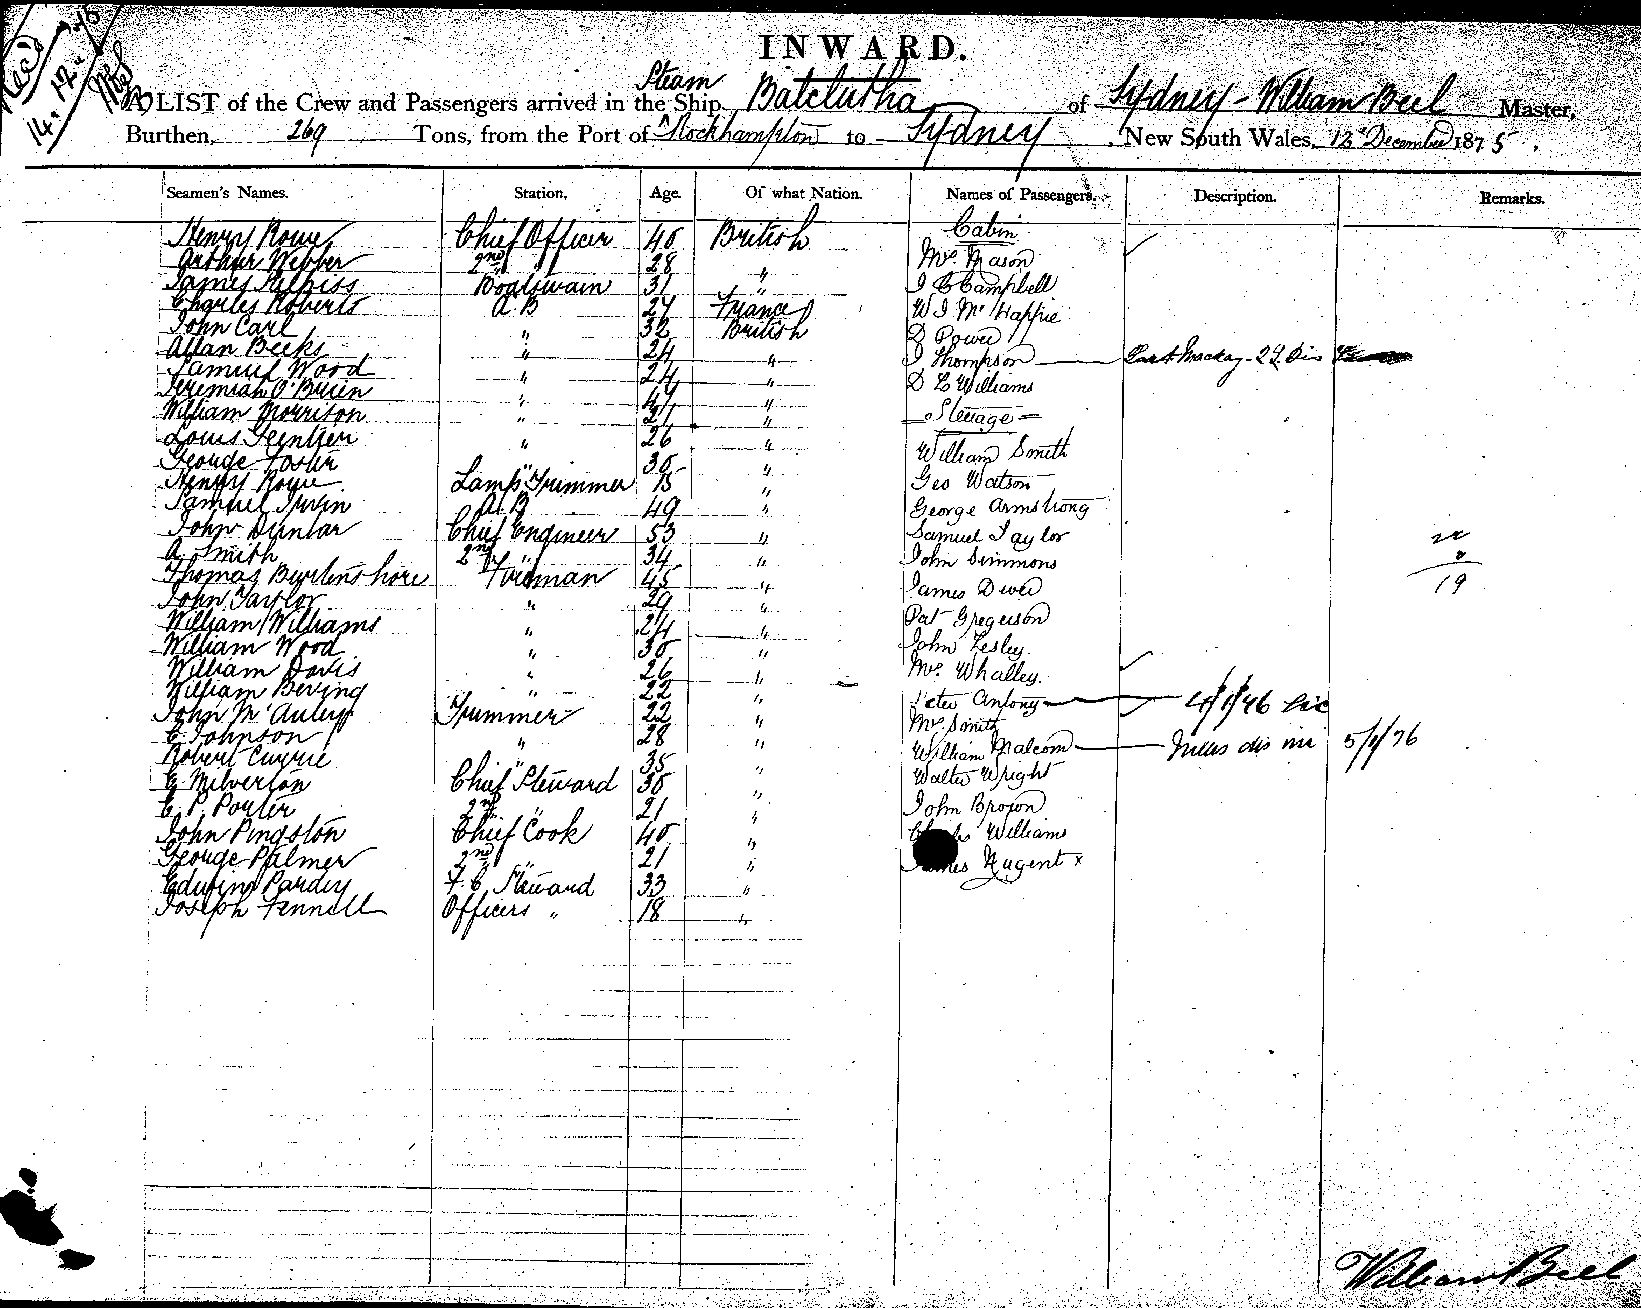 INWARD.
A LIST of the Crew and Passengers arrived in the Steam Ship Batclutha of Sydney - William Beel Master,
Burthen, 269 Tons, from the Port of Rockhampton to Sydney, New South Wales, 12th December 1875.
Seamen's Names. Station, Age. Of what Nation. Names of Passengers. Description. Remarks.
Henry Rowe Chief Officer 40 British Cabin
Arthur Webber 2nd " 28 " Mrs. Mason
James Boatswain 31 " J C Campbell
Charles Roberts A B 24 France W J
John Carl " 32 British D Power
Allan Beeks " 24 " J Thompson Mackay
Samuel Wood " 24 " D L Williams
Jeremiah O'Brien " " Steerage
William Morrison " 21 "
Louis " 26 " William Smith
George Foster " 30 " Geo Watson
Henry Rowe Lamp Trimmer 15 " George Armstrong
Samuel Irvin A B 49 " Samuel Taylor
John Dunbar Chief Engineer 53 " John Simmons
A Smith 2nd " 34 " James
Thomas Burtenshore Fireman 45 " Pat Gregerson 19
John Taylor " 29 " John Lesley
William Williams " 24 " Mrs. Whalley.
William Wood " 30 " Peter Antony
William Davis " 26 " Mrs Smith
William Beving " 22 " William Malcom 5/1/76
John McAuley Trimmer 22 " Walter Wright
C Johnson " 28 " John Brown
Robert Currie " 35 " Williams
G Milverton Chief Steward 30 " Nugent x
C. P. Porter 2nd " 21 "
John Pingston Chief Cook 40 "
George Palmer 2nd " 21 "
Edwin Pardey F. C. Steward 33 "
Joseph Fennell Officers " 18 "
William Beel